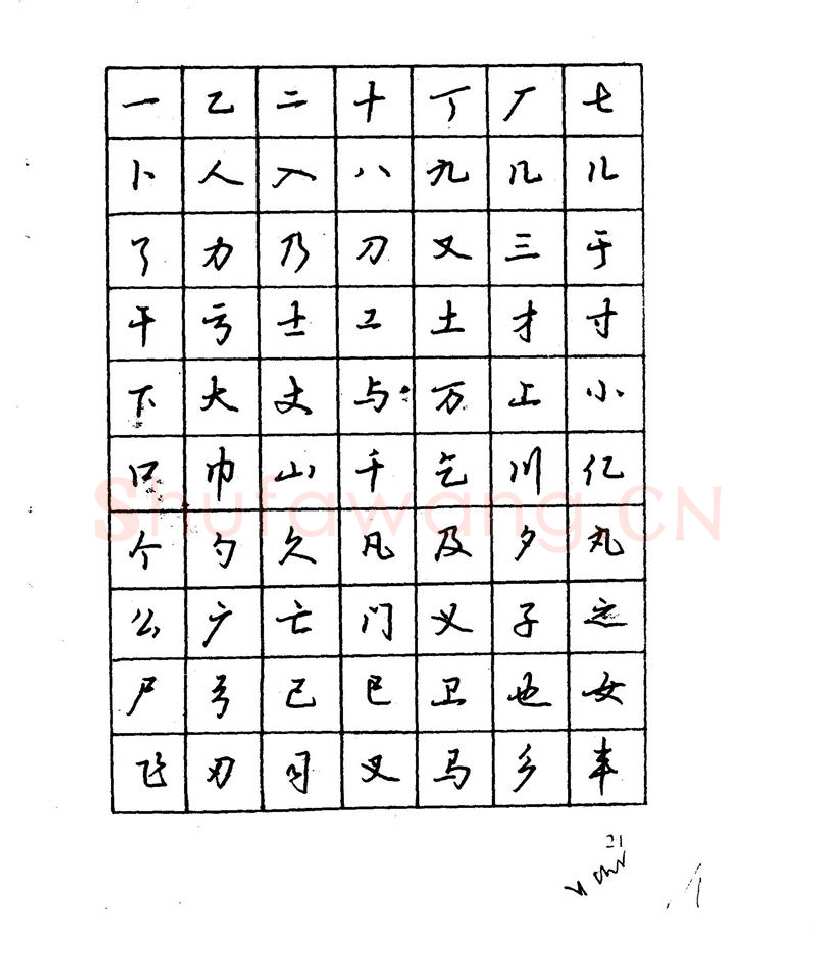 一 乙 二 十 丁 厂 七
卜 人 入 八 九 几 儿
了 力 乃 刀 又 三 于
干 亏 士 工 土 才 寸
下 大 丈 与 万 上 小
口 巾 山 千 乞 川 亿
Shufawang.CN
个 勺 久 凡 及 夕 丸
么 广 亡 门 义 子 之
尸 弓 己 已 卫 也 女
飞 刃 习 叉 马 乡 丰
21